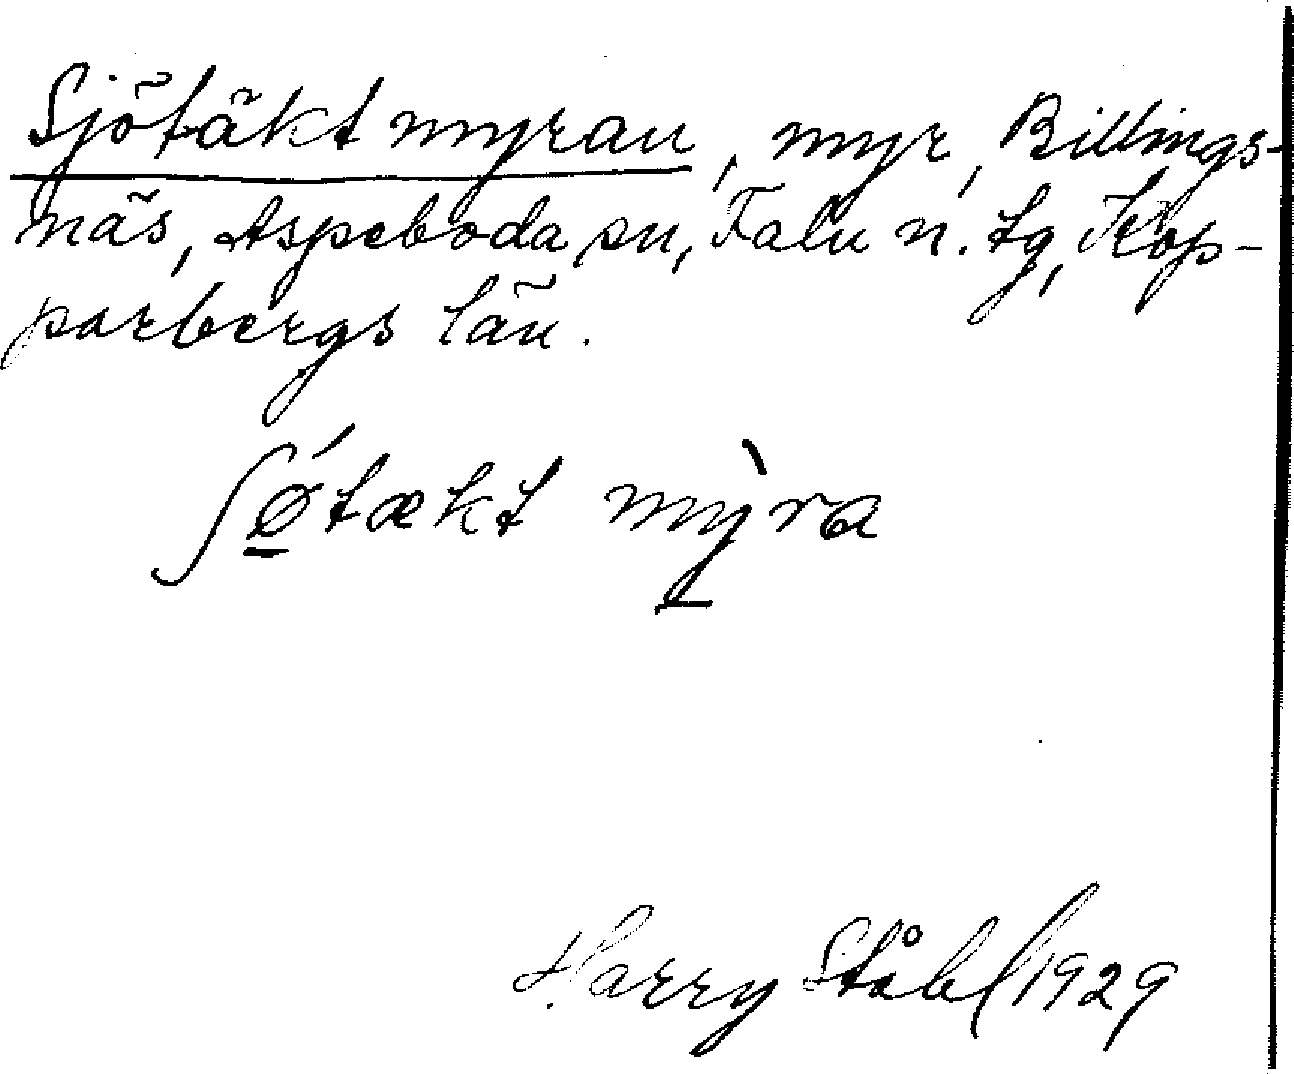 Sjötäkt myran, myr, Billings-
näs, Aspeboda sn, Falu n. tg, Kop-
parbergs län.
ʃǿ̱tækt mỳ̱ra
Harry Ståhl 1929